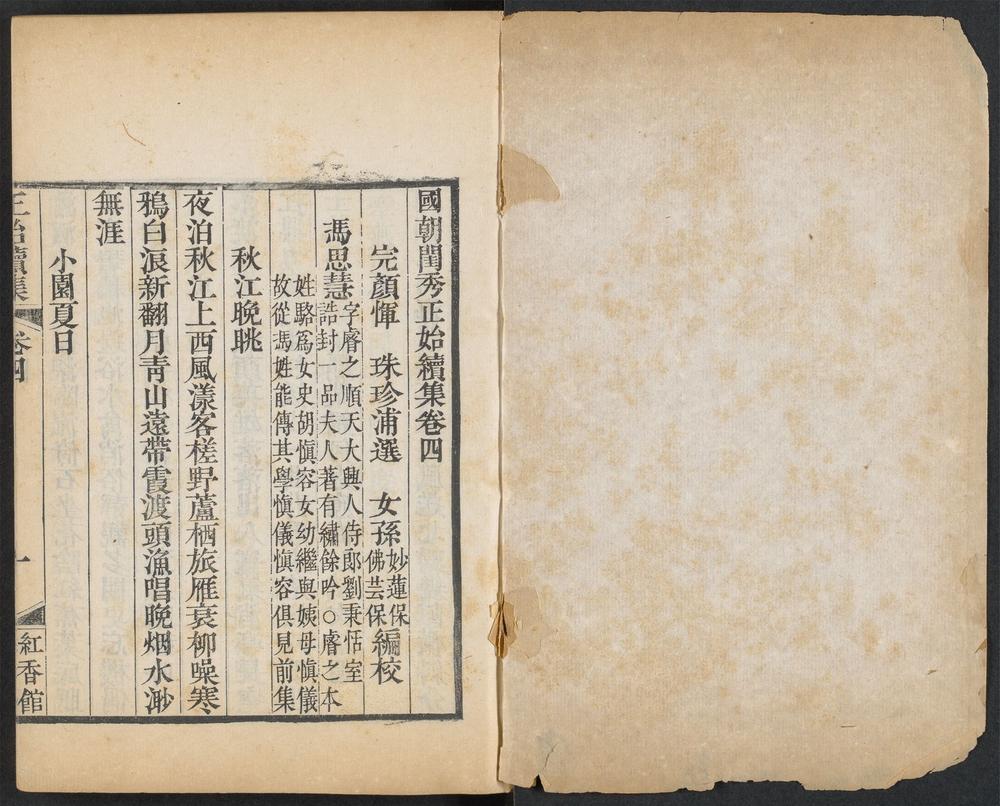 國朝閨秀正始續集卷四
完顏惲 珠珍浦選 女孫 妙蓮保 佛芸保 編校
馮思慧 字睿之順天大興人侍郎劉秉恬室
誥封一品夫人著有繡餘吟○睿之本
姓駱爲女史胡愼容女幼繼與姨母愼儀
故從馮姓能傳其學愼儀愼容俱見前集
秋江晩眺
夜泊秋江上西風漾客槎野蘆栖旅雁衰柳噪寒
鴉白浪新翻月靑山遠帶霞渡頭漁唱晩烟水渺
無涯
小園夏日
正始續集 卷四 一 紅香館